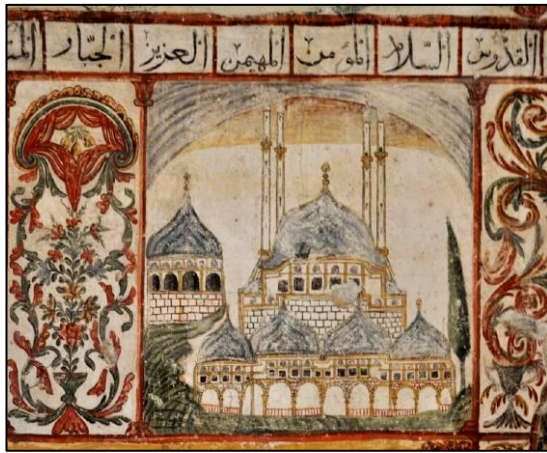 القدّوس السّلام المؤمن المهيمن العزيز الجبّار